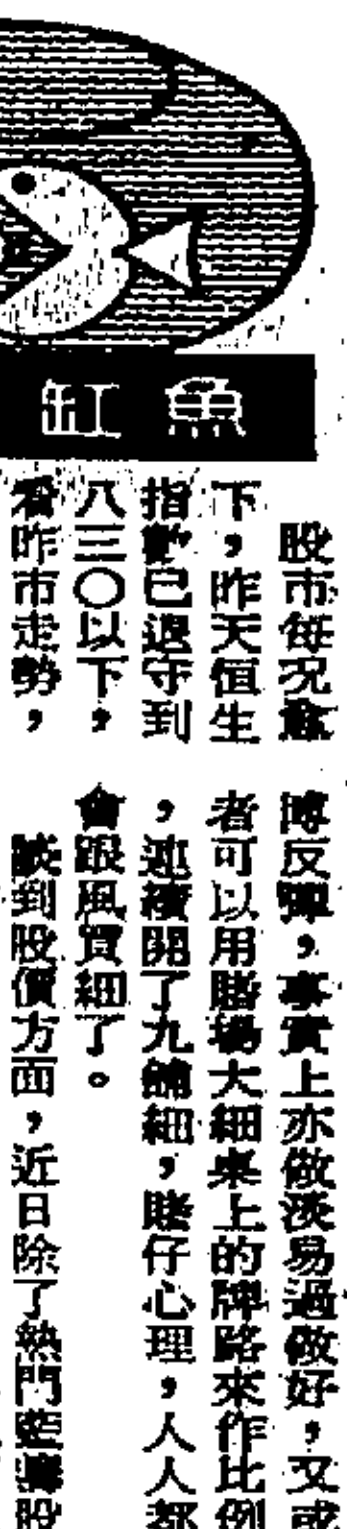 魚缸
股市每況愈
下，昨天恒生
指數已退守到
八三〇以下，
看昨市走勢，
博反彈，事實上亦做淡易過做好，又或
者可以用賭場大細桌上的牌路來作比例
，連續開了九舖細，賭仔心理，人人都
會跟風買細了。
談到股價方面，近日除了熱門藍籌股